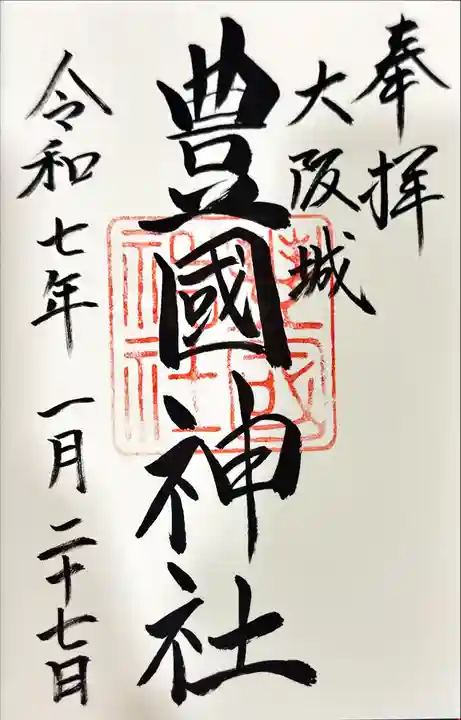 奉拝
大阪城
豊國神社
令和七年 一月 二十七日